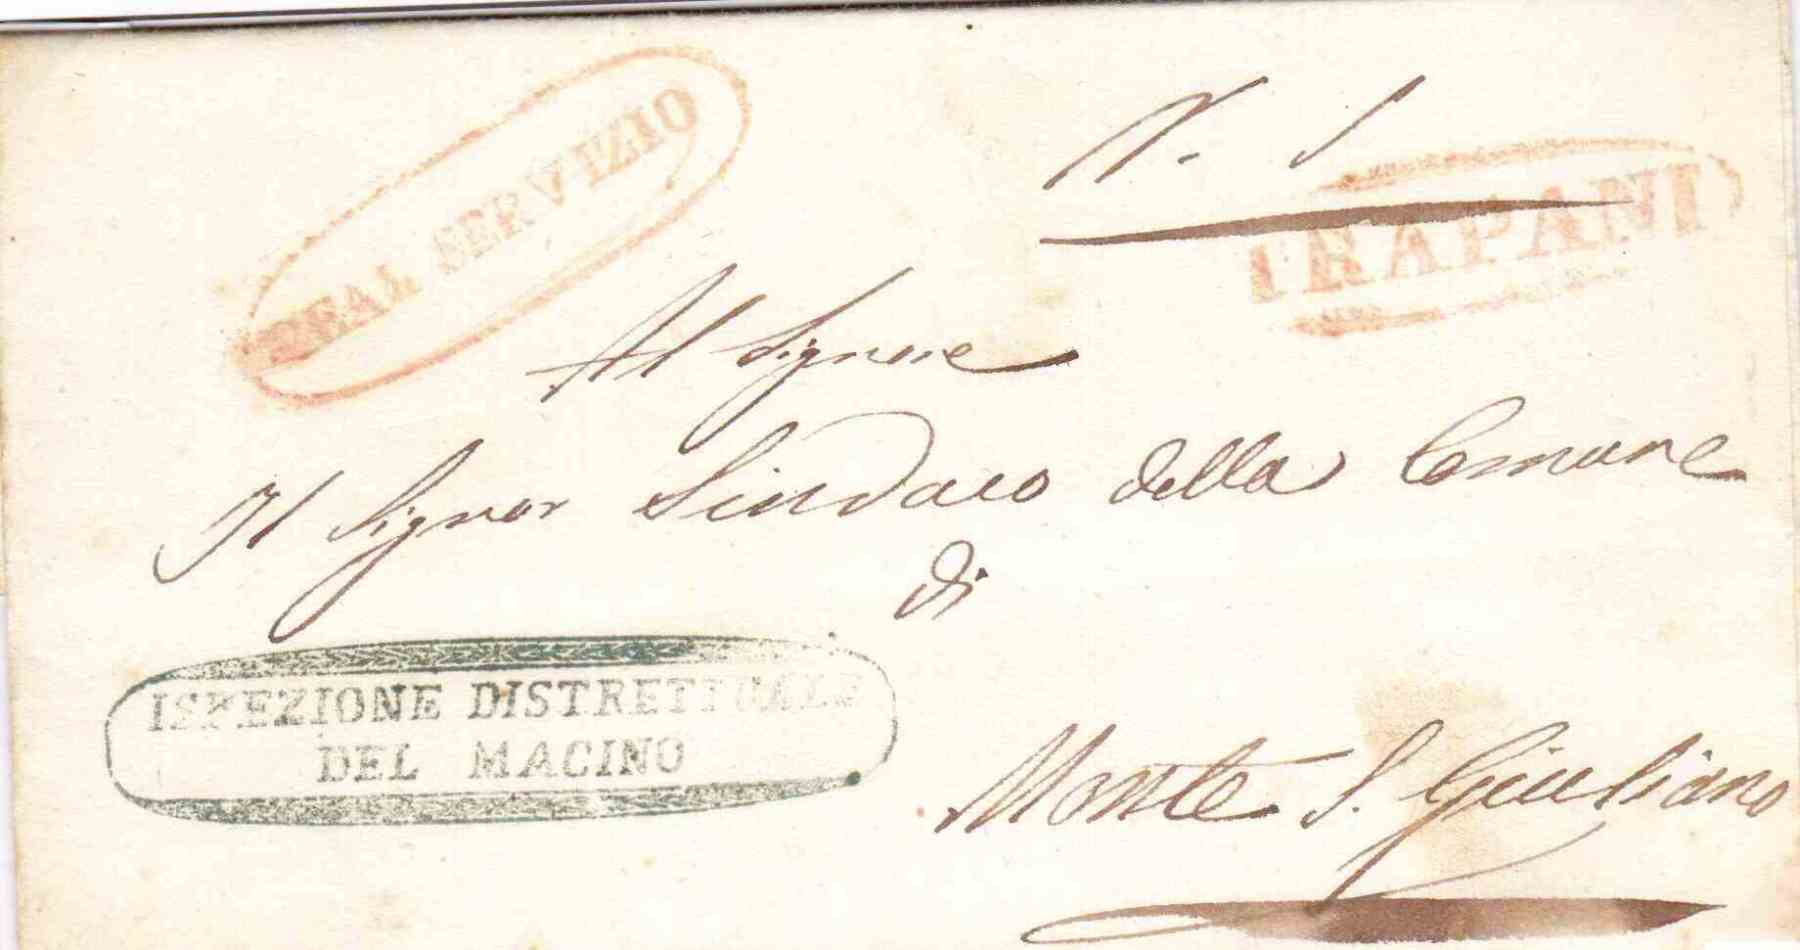 REAL SERVIZIO
N. 1
TRAPANI
Al Signore
Il Signor Sindaco della Comune
di
Monte S. Giuliano
ISPEZIONE DISTRETTUALE
DEL MACINO